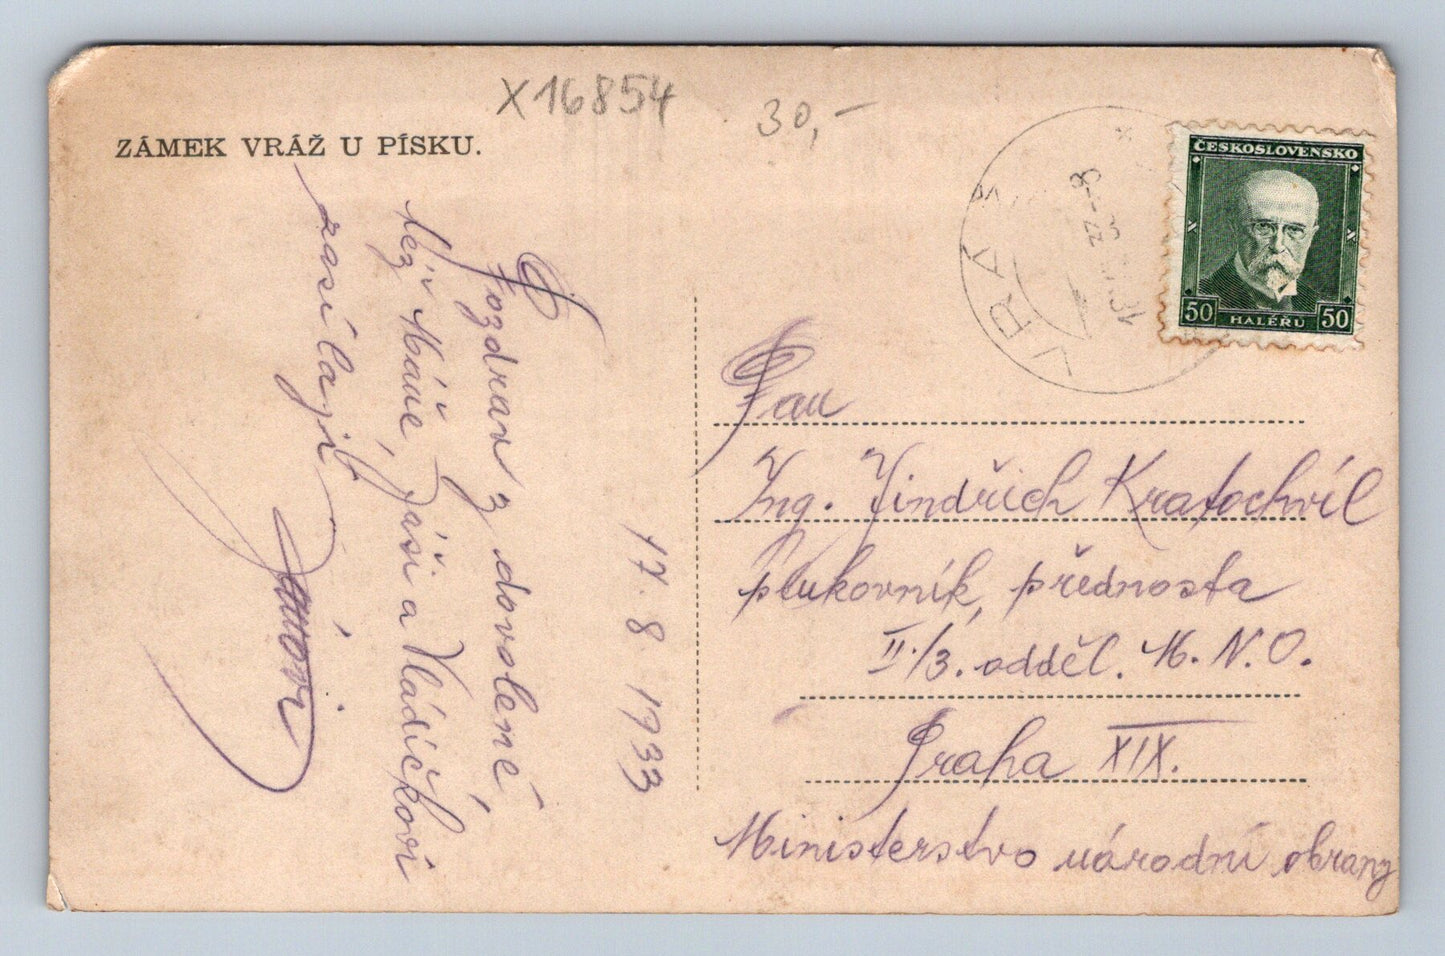 X16854
30,-
ZÁMEK VRÁŽ U PÍSKU.
VRÁŽ
ČESKOSLOVENSKO
50 HALÉŘŮ 50
17. 8. 1933
Pozdrav z dovolené
též Máně, Jáši a Vládíčkovi
zasílají
Pan
Ing. Jindřich Kratochvíl
plukovník, přednosta
II./3. odděl. M. N. O.
Praha XIX.
Ministerstvo národní obrany